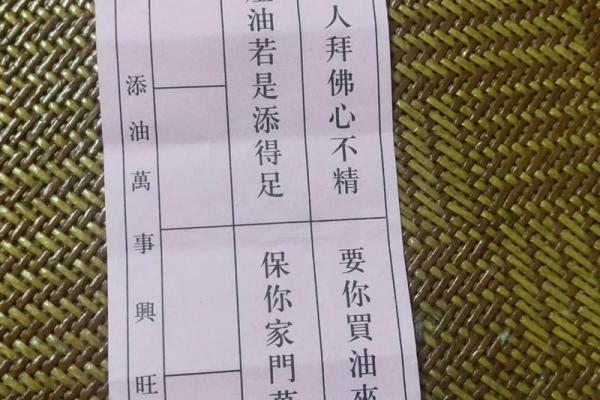 人拜佛心不精
要你買油來
油若是添得足
保你家門萬
添油萬事興旺